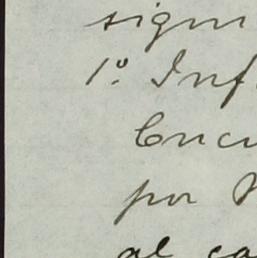 sign
1º Inf
Encu
por
al ca